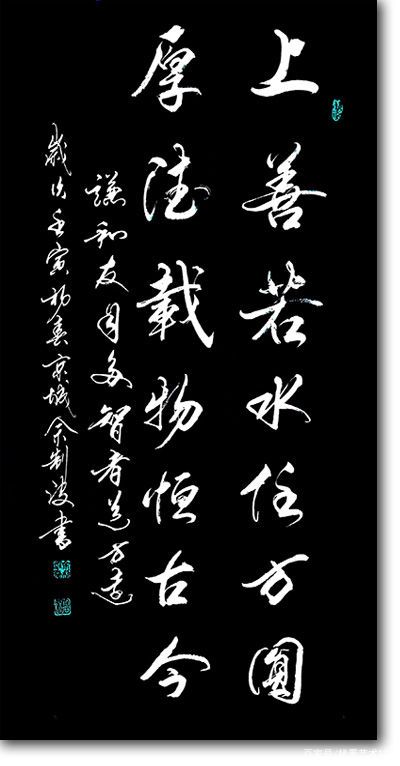 上善若水任方圓
厚德載物恒古今
謙和友自多智者道方遠
歲次壬寅初春京城制波書
百家号